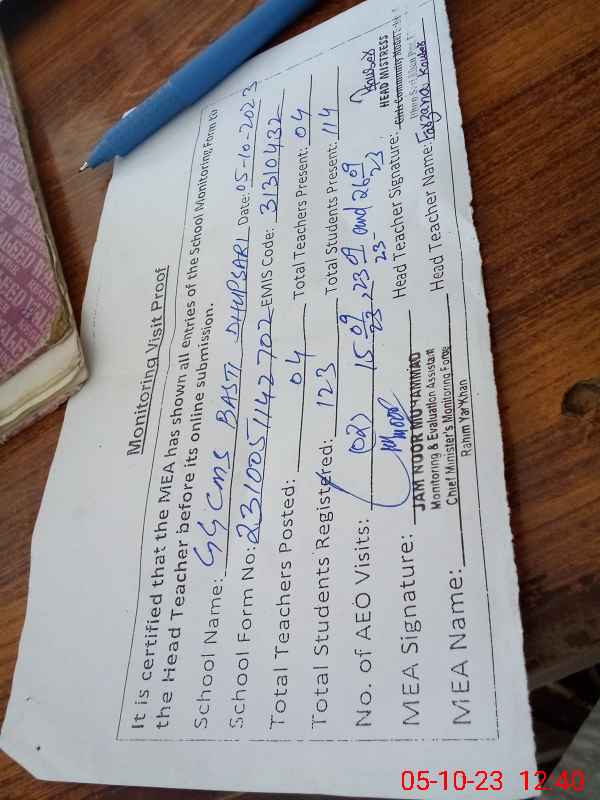 Monitoring Visit Proof
It is certified that the MEA has shown all entries of the School Monitoring Form to
the Head Teacher before its online submission.
School Name: GGCMS BASTI DHUPSARI Date: 05-10-2023
School Form No: 2310051142702 EMIS Code: 31310432
Total Teachers Posted: 04 Total Teachers Present: 04
Total Students Registered: 123 Total Students Present: 114
No. of AEO Visits: (02) 15 09 23, 23 09 23 and 26 09 23
MEA Signature: Head Teacher Signature: Kousar
HEAD MISTRESS
JAM NOOR MUHAMMAD
Monitoring & Evaluation Assistant
Chief Minister's Monitoring Force
Rahim Yar Khan
MEA Name: Head Teacher Name: Farzana Kousar
05-10-23 12:40